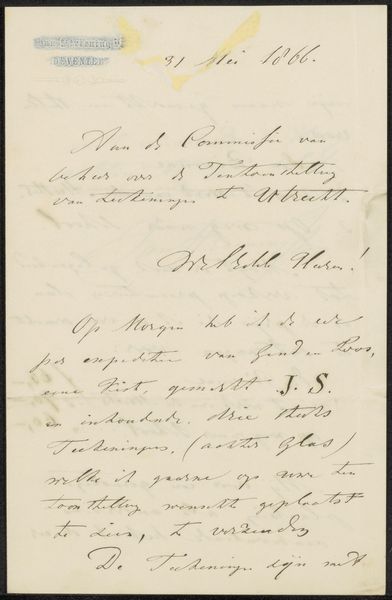 DEVENTER
31 Mei 1866.
Aan de Commissie van
beheer over de Tentoonstelling
van teekeningen te Utrecht.
WelEdele Heeren!
Op Morgen heb ik de eer
per expeditie van Gend en Loos,
eene kist, gemerkt J. S.
en inhoudende drie stuks
Teekeningen, (achter Glas)
welke ik gaarne op uwe ten
toonstelling wenschte geplaatst
te zien, te verzenden
De Teekeningen zijn met